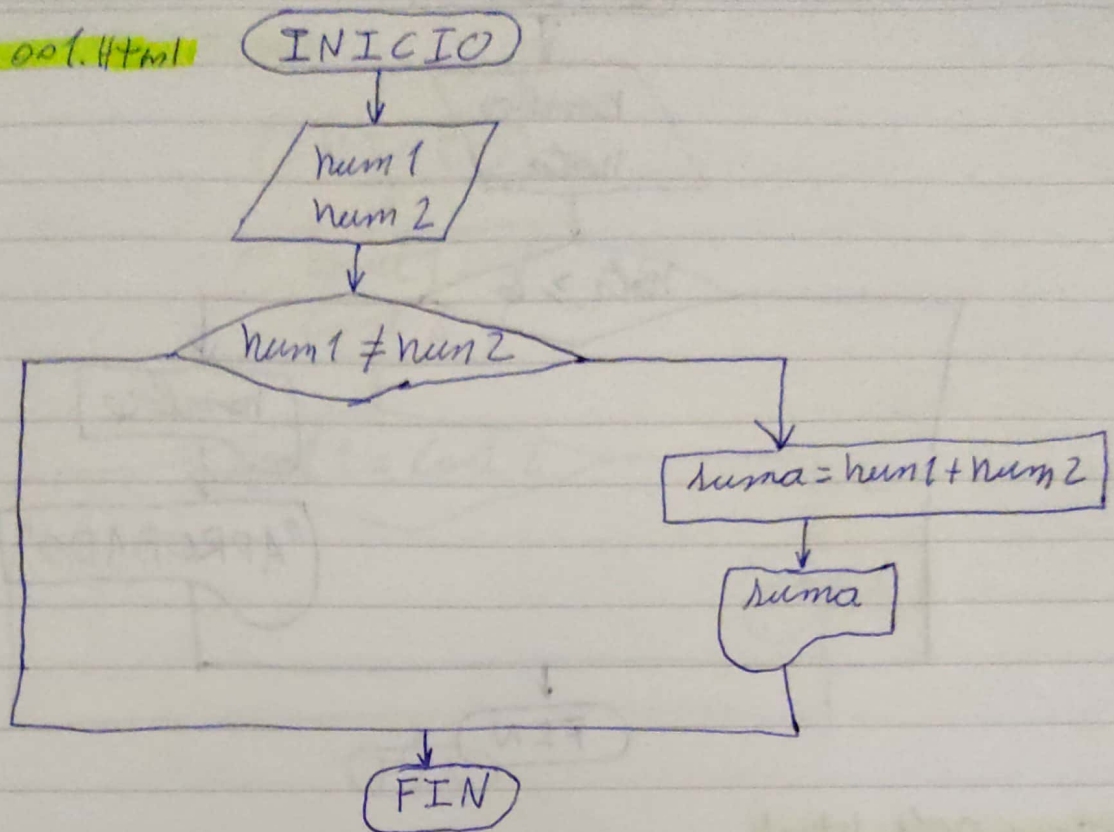 001.Html
INICIO
num1
num2
num1 ≠ num2
suma = num1 + num2
suma
FIN